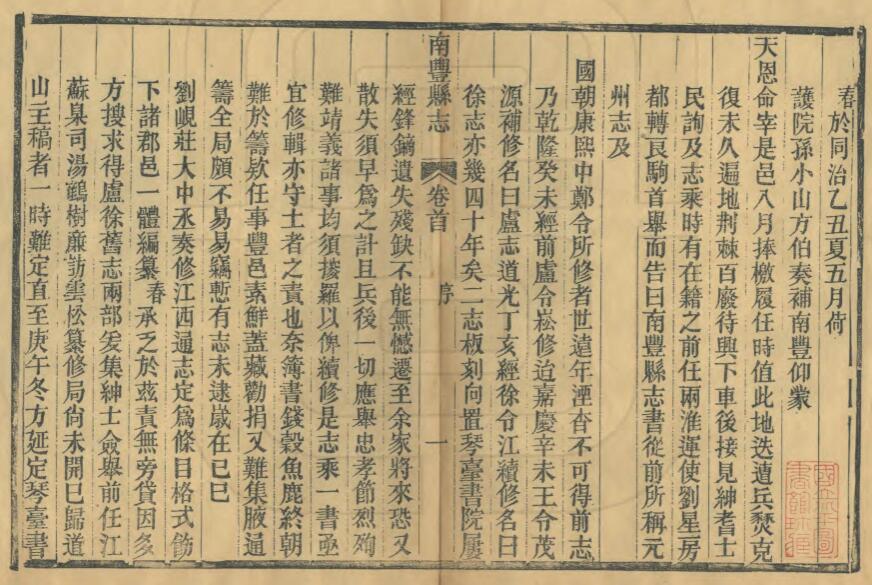 春於同治乙丑夏五月荷
護院孫小山方伯奏補南豐仰蒙
天恩命宰是邑八月捧檄履任時值此地迭遭兵燹克
復未久遍地荆棘百廢待興下車後接見紳耆士
民詢及志乘時有在籍之前任兩淮運使劉星房
都轉良駒首舉而告曰南豐縣志書從前所稱元
州志及
國朝康熙中鄭令所修者世遠年湮杳不可得前志
乃乾隆癸未經前盧令崧修迨嘉慶辛未王令茂
源補修名曰盧志道光丁亥經徐令江續修名曰
徐志亦幾四十年矣二志板刻向置琴臺書院屢
南豐縣志 卷首 序 一
經鋒鏑遺失殘缺不能無憾遷至余家將來恐又
散失須早爲之計且兵後一切應舉忠孝節烈殉
難靖義諸事均須搜羅以俾續修是志乘一書亟
宜修輯亦守土者之責也奈簿書錢穀魚鹿終朝
難於籌欵任事豐邑素鮮蓋藏勸捐又難集腋通
籌全局頗不易易竊慙有志未逮歲在己巳
劉峴莊大中丞奏修江西通志定爲條目格式飭
下諸郡邑一體編纂春承乏於兹責無旁貸因多
方搜求得盧徐舊志兩部爰集紳士僉舉前任江
蘇臬司湯鶴樹廉訪雲松纂修局尚未開巳歸道
山主稿者一時難定直至庚午冬方延定琴臺書